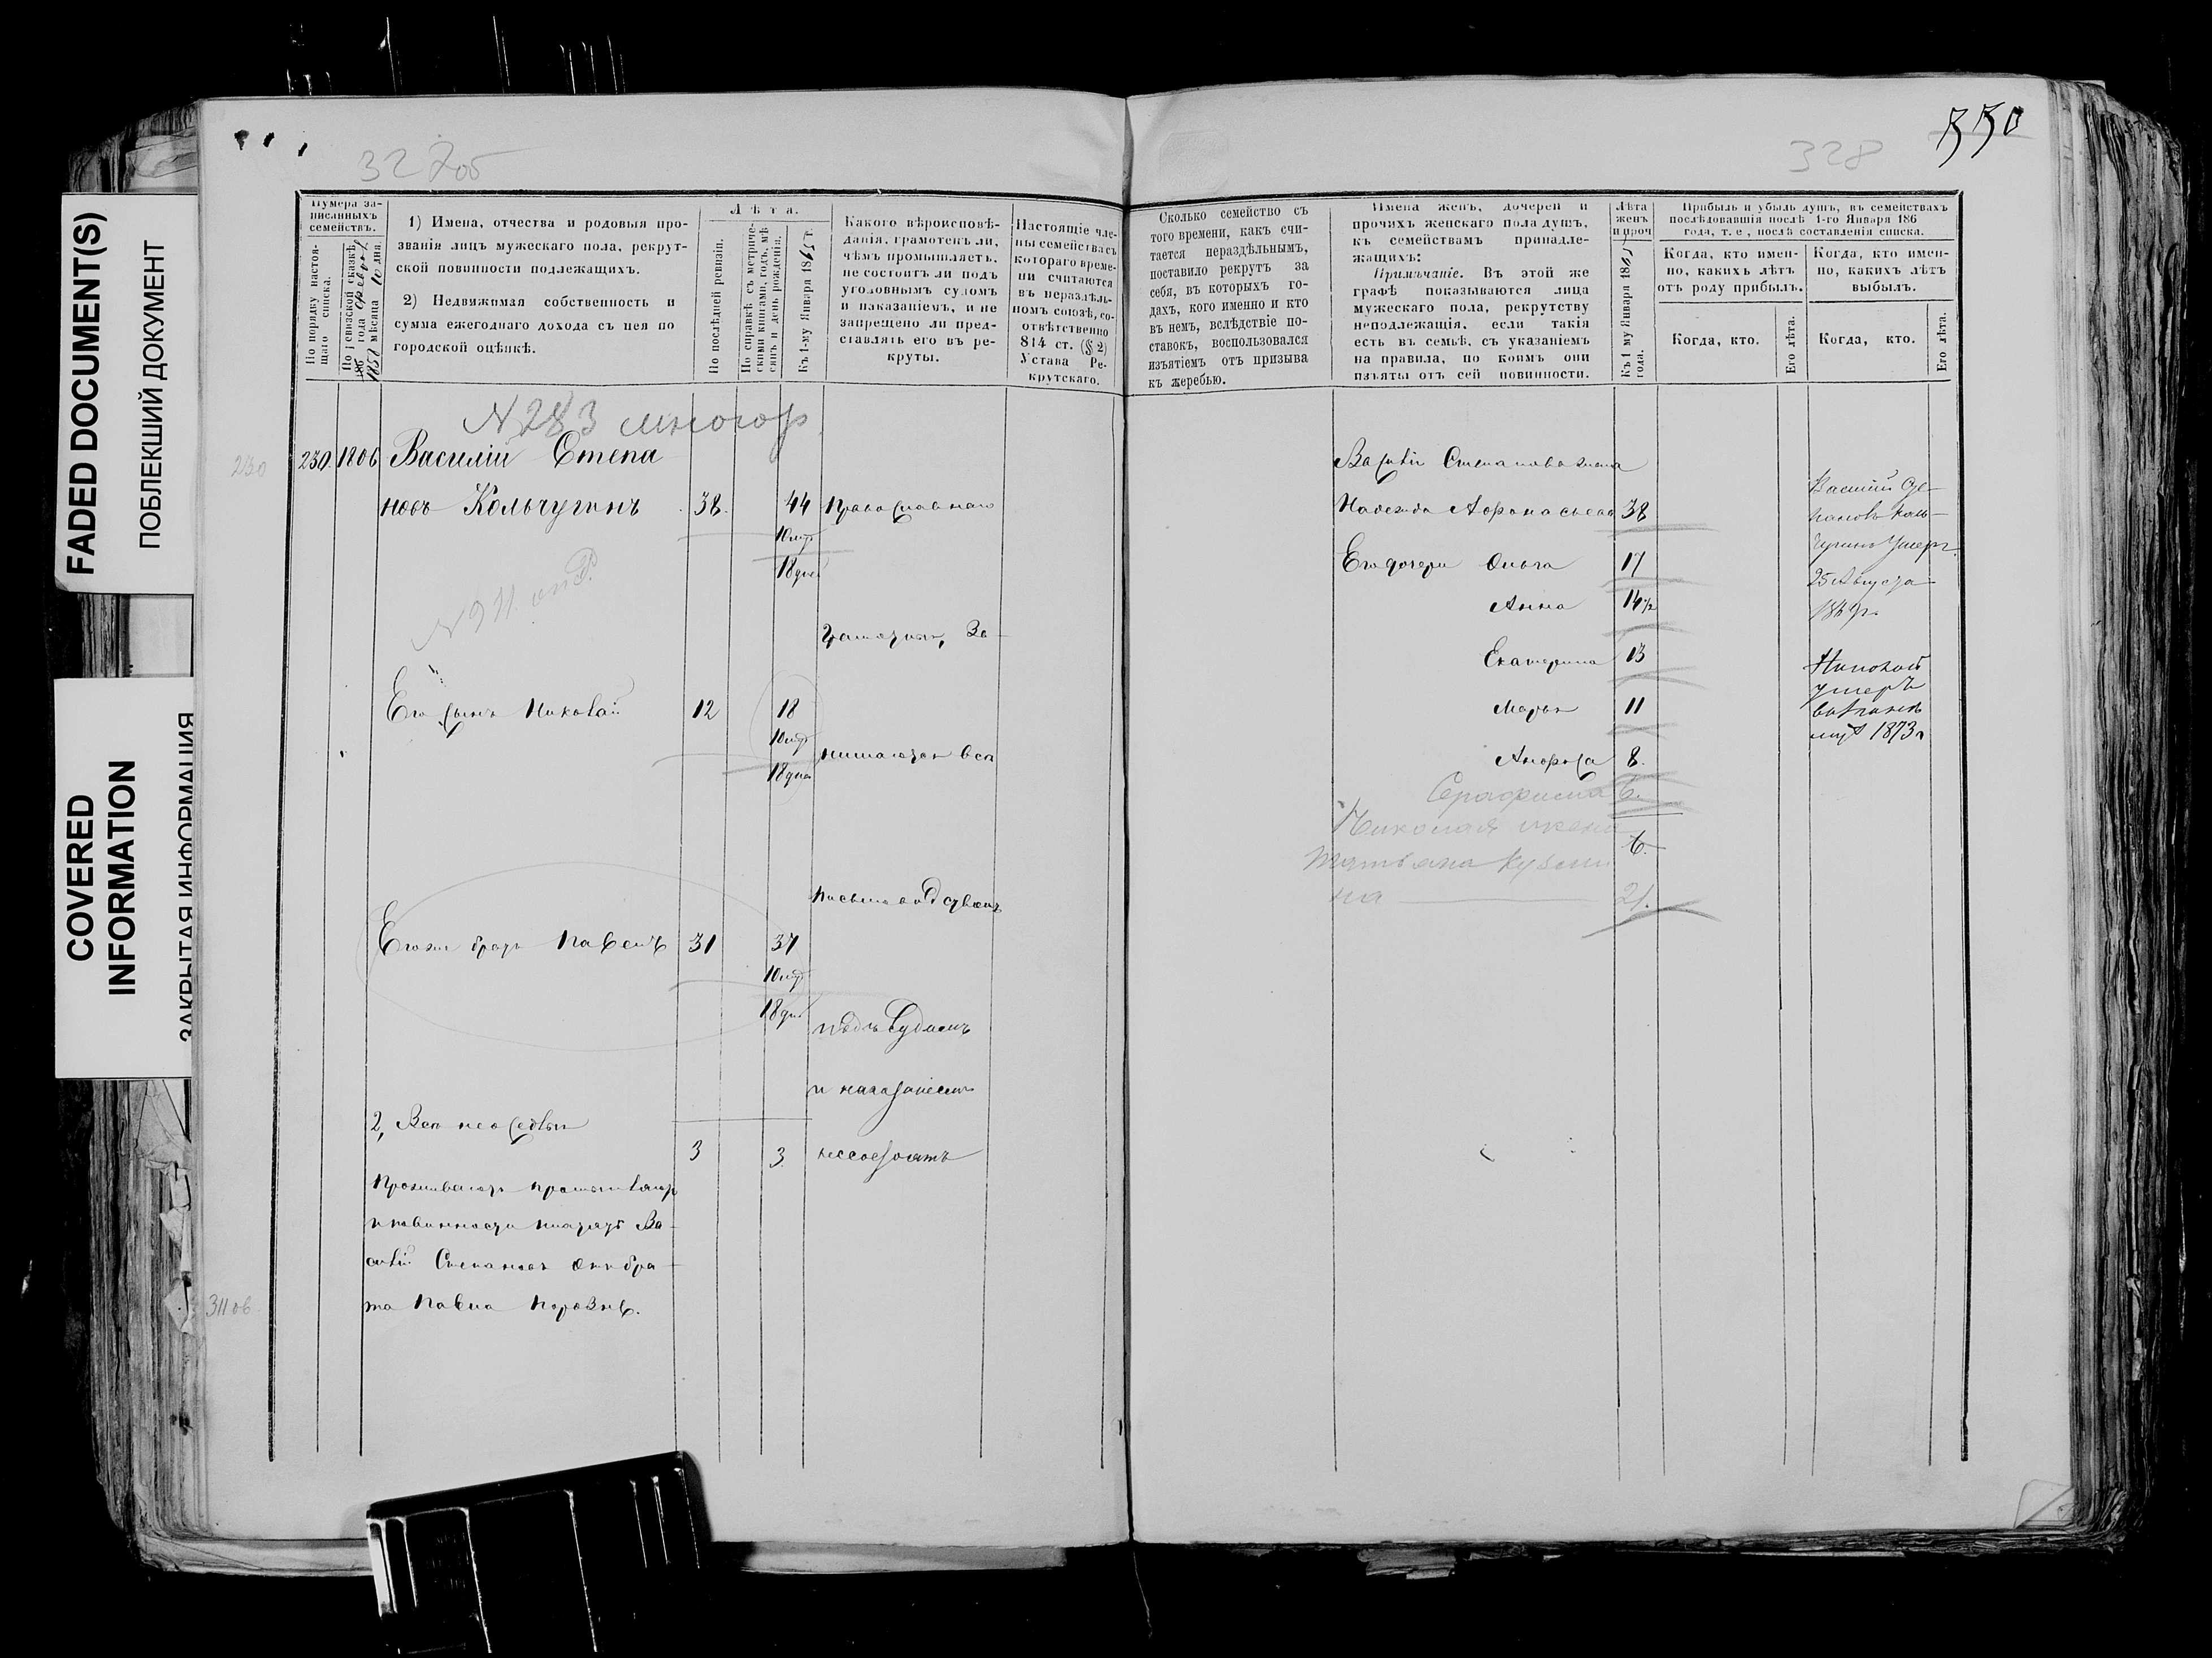 FADED DOCUMENT(S)
ПОБЛЕКШИЙ ДОКУМЕНТ
COVERED
INFORMATION
ЗАКРЫТАЯ ИНФОРМАЦИЯ
327об
Нумера за-
писанныхъ
семействъ.
По порядку настоя-
щаго списка.
По ревизской сказкѣ
1) Имена, отчества и родовыя про-
званія лицъ мужескаго пола, рекрут-
ской повинности подлежащихъ.
2) Недвижимая собственность и
сумма ежегоднаго дохода съ нея по
городской оцѣнкѣ.
Лѣта.
По послѣдней ревизіи.
По справкѣ съ метриче-
скими книгами, годъ, мѣ
сяцъ и день рожденія.
Къ 1-му Января 1865 г.
Какого вѣроисповѣ-
данія, грамотенъ ли,
чѣмъ промышляетъ,
не состоитъ ли подъ
уголовнымъ судомъ
и наказаніемъ, и не
запрещено ли пред-
ставлять его въ ре-
круты.
Настоящіе чле-
ны семейства съ
котораго време-
ни считаются
въ нераздѣль-
номъ союзѣ, со-
отвѣтственно
814 ст. (§ 2)
Устава Ре-
крутскаго.
N 283 многор
230
230. 1806 Василій Степа
новъ Кольчугинъ 38. 44 Православнаго
10 мѣ
18 дней
Грамотны, За-
Его сынъ Николай 12 18
10 мѣ
18 дня
нимаются всп
Его же братъ Павелъ 31 37
10 мѣ
18 дн
подъ Судомъ
и наказаніемъ
2, Вси не
3 3 несостоятъ
и повинности платятъ Ва-
силій Степановъ отъ бра-
та Павла порознь.
311 об
550
328
Сколько семейство съ
того времени, какъ счи-
тается нераздѣльнымъ,
поставило рекрутъ за
себя, въ которыхъ го-
дахъ, кого именно и кто
въ немъ, вслѣдствіе по-
ставокъ, воспользовался
изъятіемъ отъ призыва
къ жеребью.
Имена женъ, дочерей и
прочихъ женскаго пола душъ,
къ семействамъ принадле-
жащихъ:
Примѣчаніе. Въ этой же
графѣ показываются лица
мужескаго пола, рекрутству
неподлежащія, если такія
есть въ семьѣ, съ указаніемъ
на правила, по коимъ они
изъяты отъ сей повинности.
Лѣта
женъ
и проч
Къ 1 му Января 1865
года.
Прибыль и убыль душъ, въ семействахъ
послѣдовавшія послѣ 1-го Января 186
года, т. е., послѣ составленія списка.
Когда, кто имен-
но, какихъ лѣтъ
отъ роду прибылъ.
Когда, кто имен-
но, какихъ лѣтъ
выбылъ.
Когда, кто.
Его лѣта.
Когда, кто.
Его лѣта.
Василія Степанова жена
Надежда Афонасьева 38
Его дочери Ольга 17
Анна 14 1/2
Екатерина 13
Марья 11
Анфиса 8.
Серафима 6.
Николая жена
Татьяна Кузьми 6.
на 21.
Василій Сте-
пановъ Коль-
чугинъ Умеръ
25 Августа
Николай
умеръ
1873 г